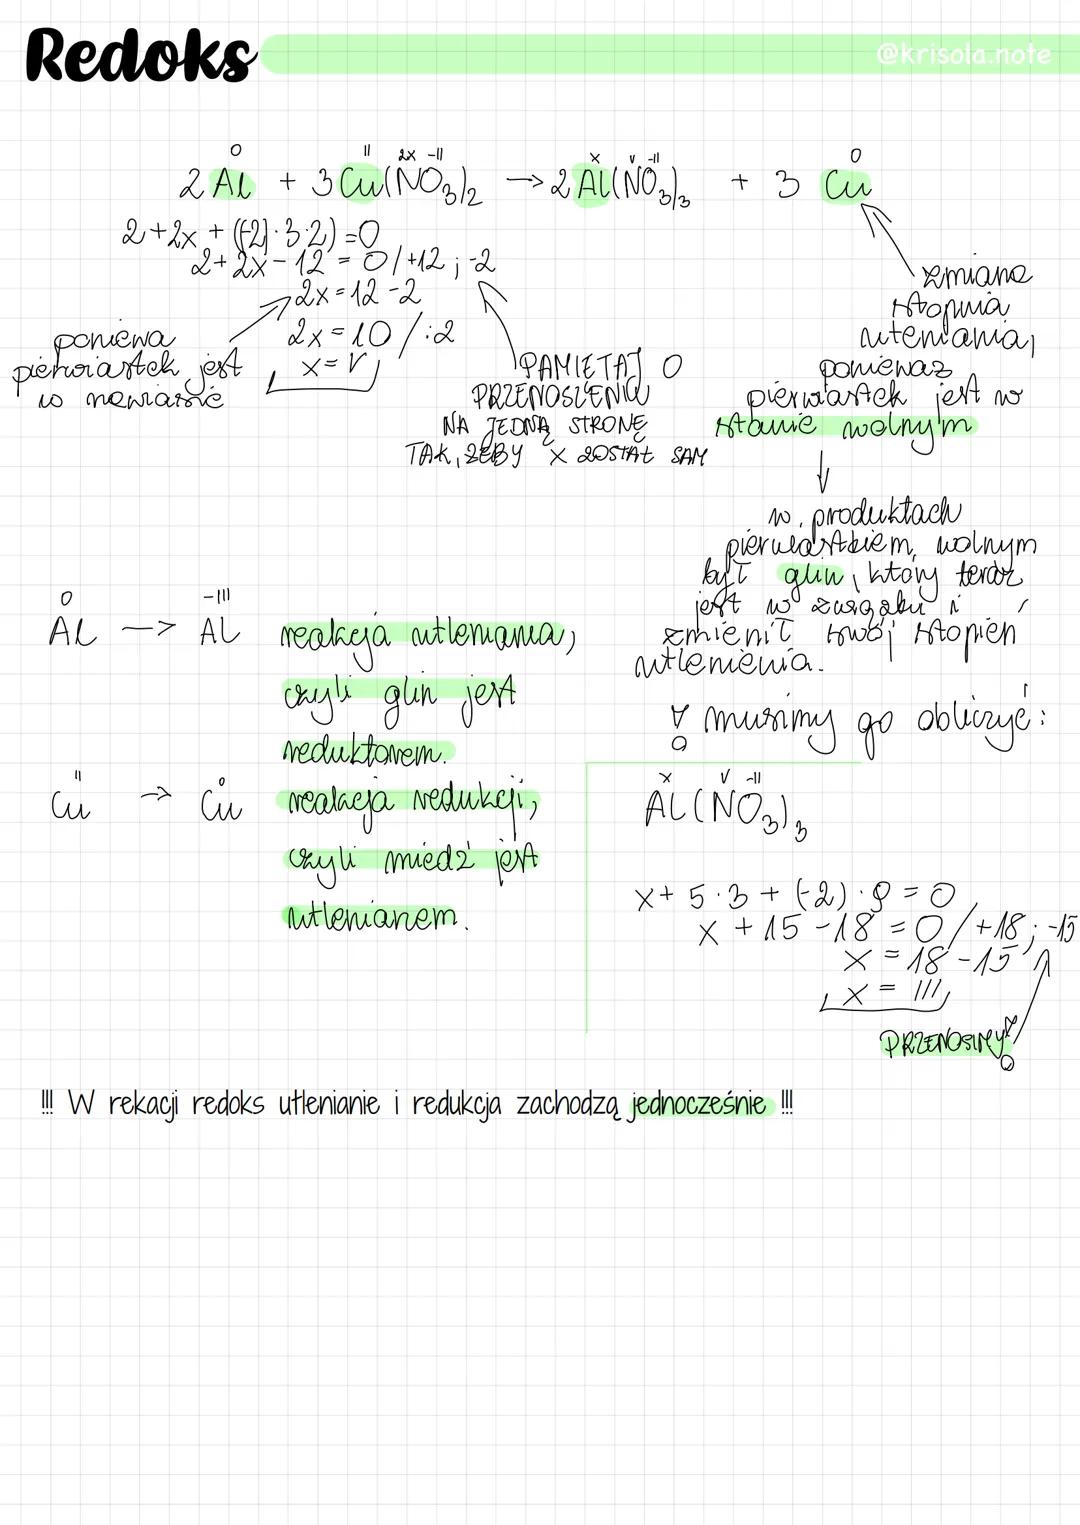 Redoks
@krisola.note
0 II 2x -II x V -II 0
2 Al + 3 Cu(NO3)2 → 2 Al(NO3)3 + 3 Cu
2+2x+((-2)·3·2)=0
2+2x-12=0/+12;-2
2x=12-2
2x=10/:2
x=V
poniewa
pierwiastek jest
w nawiasie
PAMIĘTAJ O
PRZENOSZENIU
NA JEDNĄ STRONĘ
TAK, ŻEBY X ZOSTAŁ SAM
zmiana
stopnia
utleniania,
ponieważ
pierwiastek jest w
stanie wolnym
↓
w produktach
pierwiastkiem wolnym
był glin, który teraz
jest w związku i
zmienił swój stopień
utlenienia.
! musimy go obliczyć:
0 -III
Al → Al reakcja utleniania,
czyli glin jest
reduktorem.
II 0
Cu → Cu reakcja redukcji,
czyli miedź jest
utleniaczem.
x V -II
Al(NO3)3
x+5·3+(-2)·9=0
x+15-18=0/+18;-15
x=18-15
x=III
PRZENOSIMY!
!!! W rekacji redoks utlenianie i redukcja zachodzą jednocześnie !!!